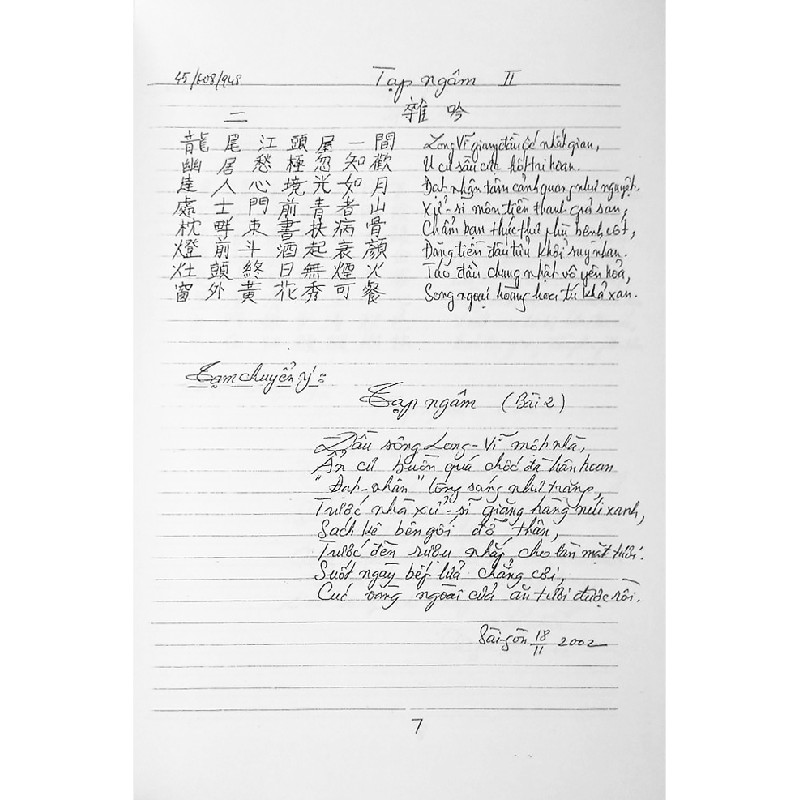 45/608/948
Tạp ngâm II
二 雜吟
龍尾江頭屋一間 Long Vĩ giang đầu ốc nhất gian,
幽居愁極忽知歡 U cư sầu cực hốt tri hoan.
達人心境光如月 Đạt nhân tâm cảnh quang như nguyệt.
處士門前青者山 Xử sĩ môn tiền thanh giả san,
枕畔束書扶病骨 Chẩm bạn thúc thư phù bệnh cốt,
燈前斗酒起衰顔 Đăng tiền đẩu tửu khởi suy nhan.
灶頭終日無煙火 Táo đầu chung nhật vô yên hỏa,
窗外黃花秀可餐 Song ngoại hoàng hoa tú khả xan.
Tạm chuyển ý:
Tạp ngâm (Bài 2)
Đầu sông Long-Vĩ một nhà,
Ẩn cư buồn quá chốc đà hân hoan
"Đạt-nhân" lòng sáng như trăng,
Trước nhà xử-sĩ giăng hàng núi xanh,
Sách kê bên gối đỡ thân,
Trước đèn rượu nhắp cho lần mặt tươi.
Suốt ngày bếp lửa chẳng cời,
Cúc vàng ngoài cửa ăn tươi được rồi.
Sài gòn 18/11 2002
7